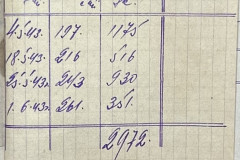 4.5.43. 197. 1175
18.5.43. 216 516
25.5.43. 243 930
1.6.43. 261. 351.
2972.